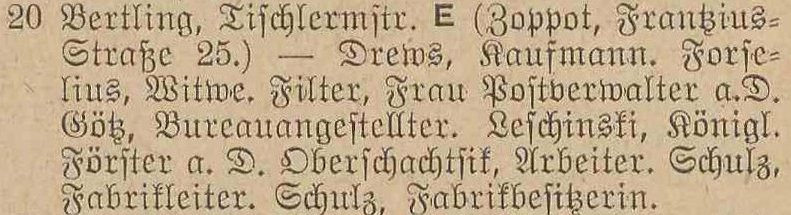 20 Bertling, Tischlermstr. E (Zoppot, Frantzius-
Straße 25.) — Drews, Kaufmann. Forse-
lius, Witwe. Filter, Frau Postverwalter a.D.
Götz, Bureauangestellter. Leschinski, Königl.
Förster a. D. Oberschachtsik, Arbeiter. Schulz,
Fabrikleiter. Schulz, Fabrikbesitzerin.